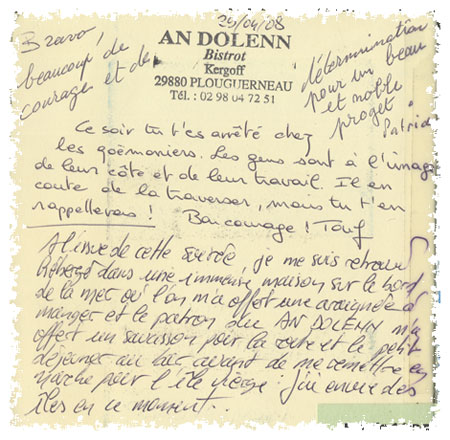 29/04/08
Bravo,
beaucoup de
courage et de
AN DOLENN
Bistrot
Kergoff
29880 PLOUGUERNEAU
Tél. : 02 98 04 72 51
détermination
pour un beau
et noble
projet
Patricia
Ce soir tu t'es arrêté chez
les goëmoniers. Les gens sont à l'image
de leur côte et de leur travail. Il en
coute de la traverser, mais tu t'en
rappelleras ! Bon courage ! Touf
A l'issue de cette soirée je me suis retrouvé
hébergé dans une immense maison sur le bord
de la mer où l'on m'a offert une araignée à
manger et le patron du AN DOLENN m'a
offert un saucisson pour la route et le petit
déjeuner au bar avant de me remettre en
marche pour l'île vierge : j'ai envie des
îles en ce moment...